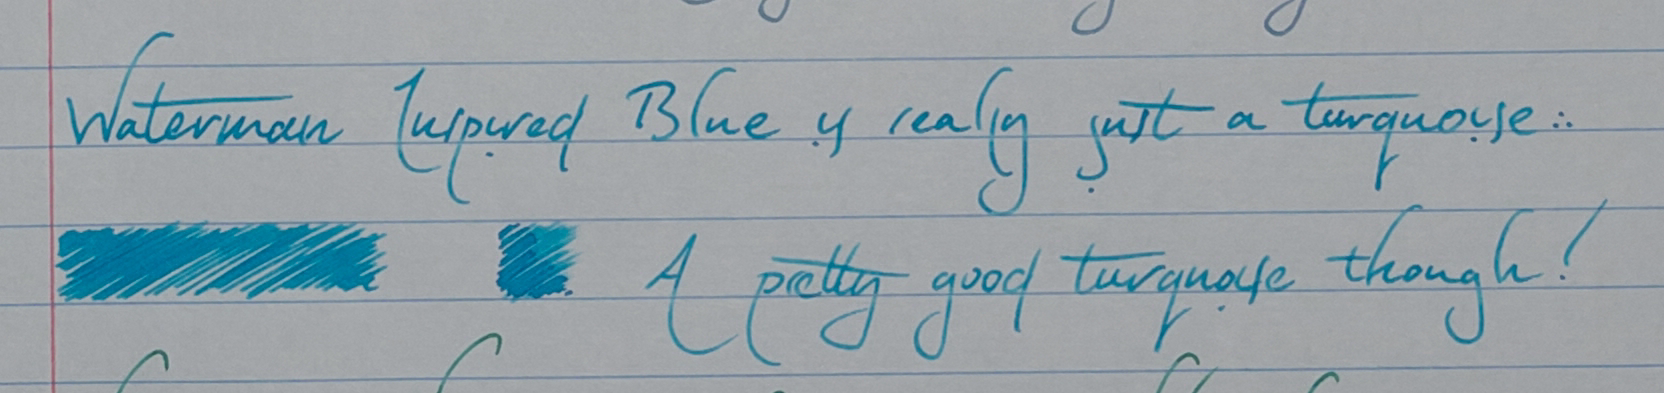 Waterman Inspired Blue is really just a turquoise...
A pretty good turquoise though!